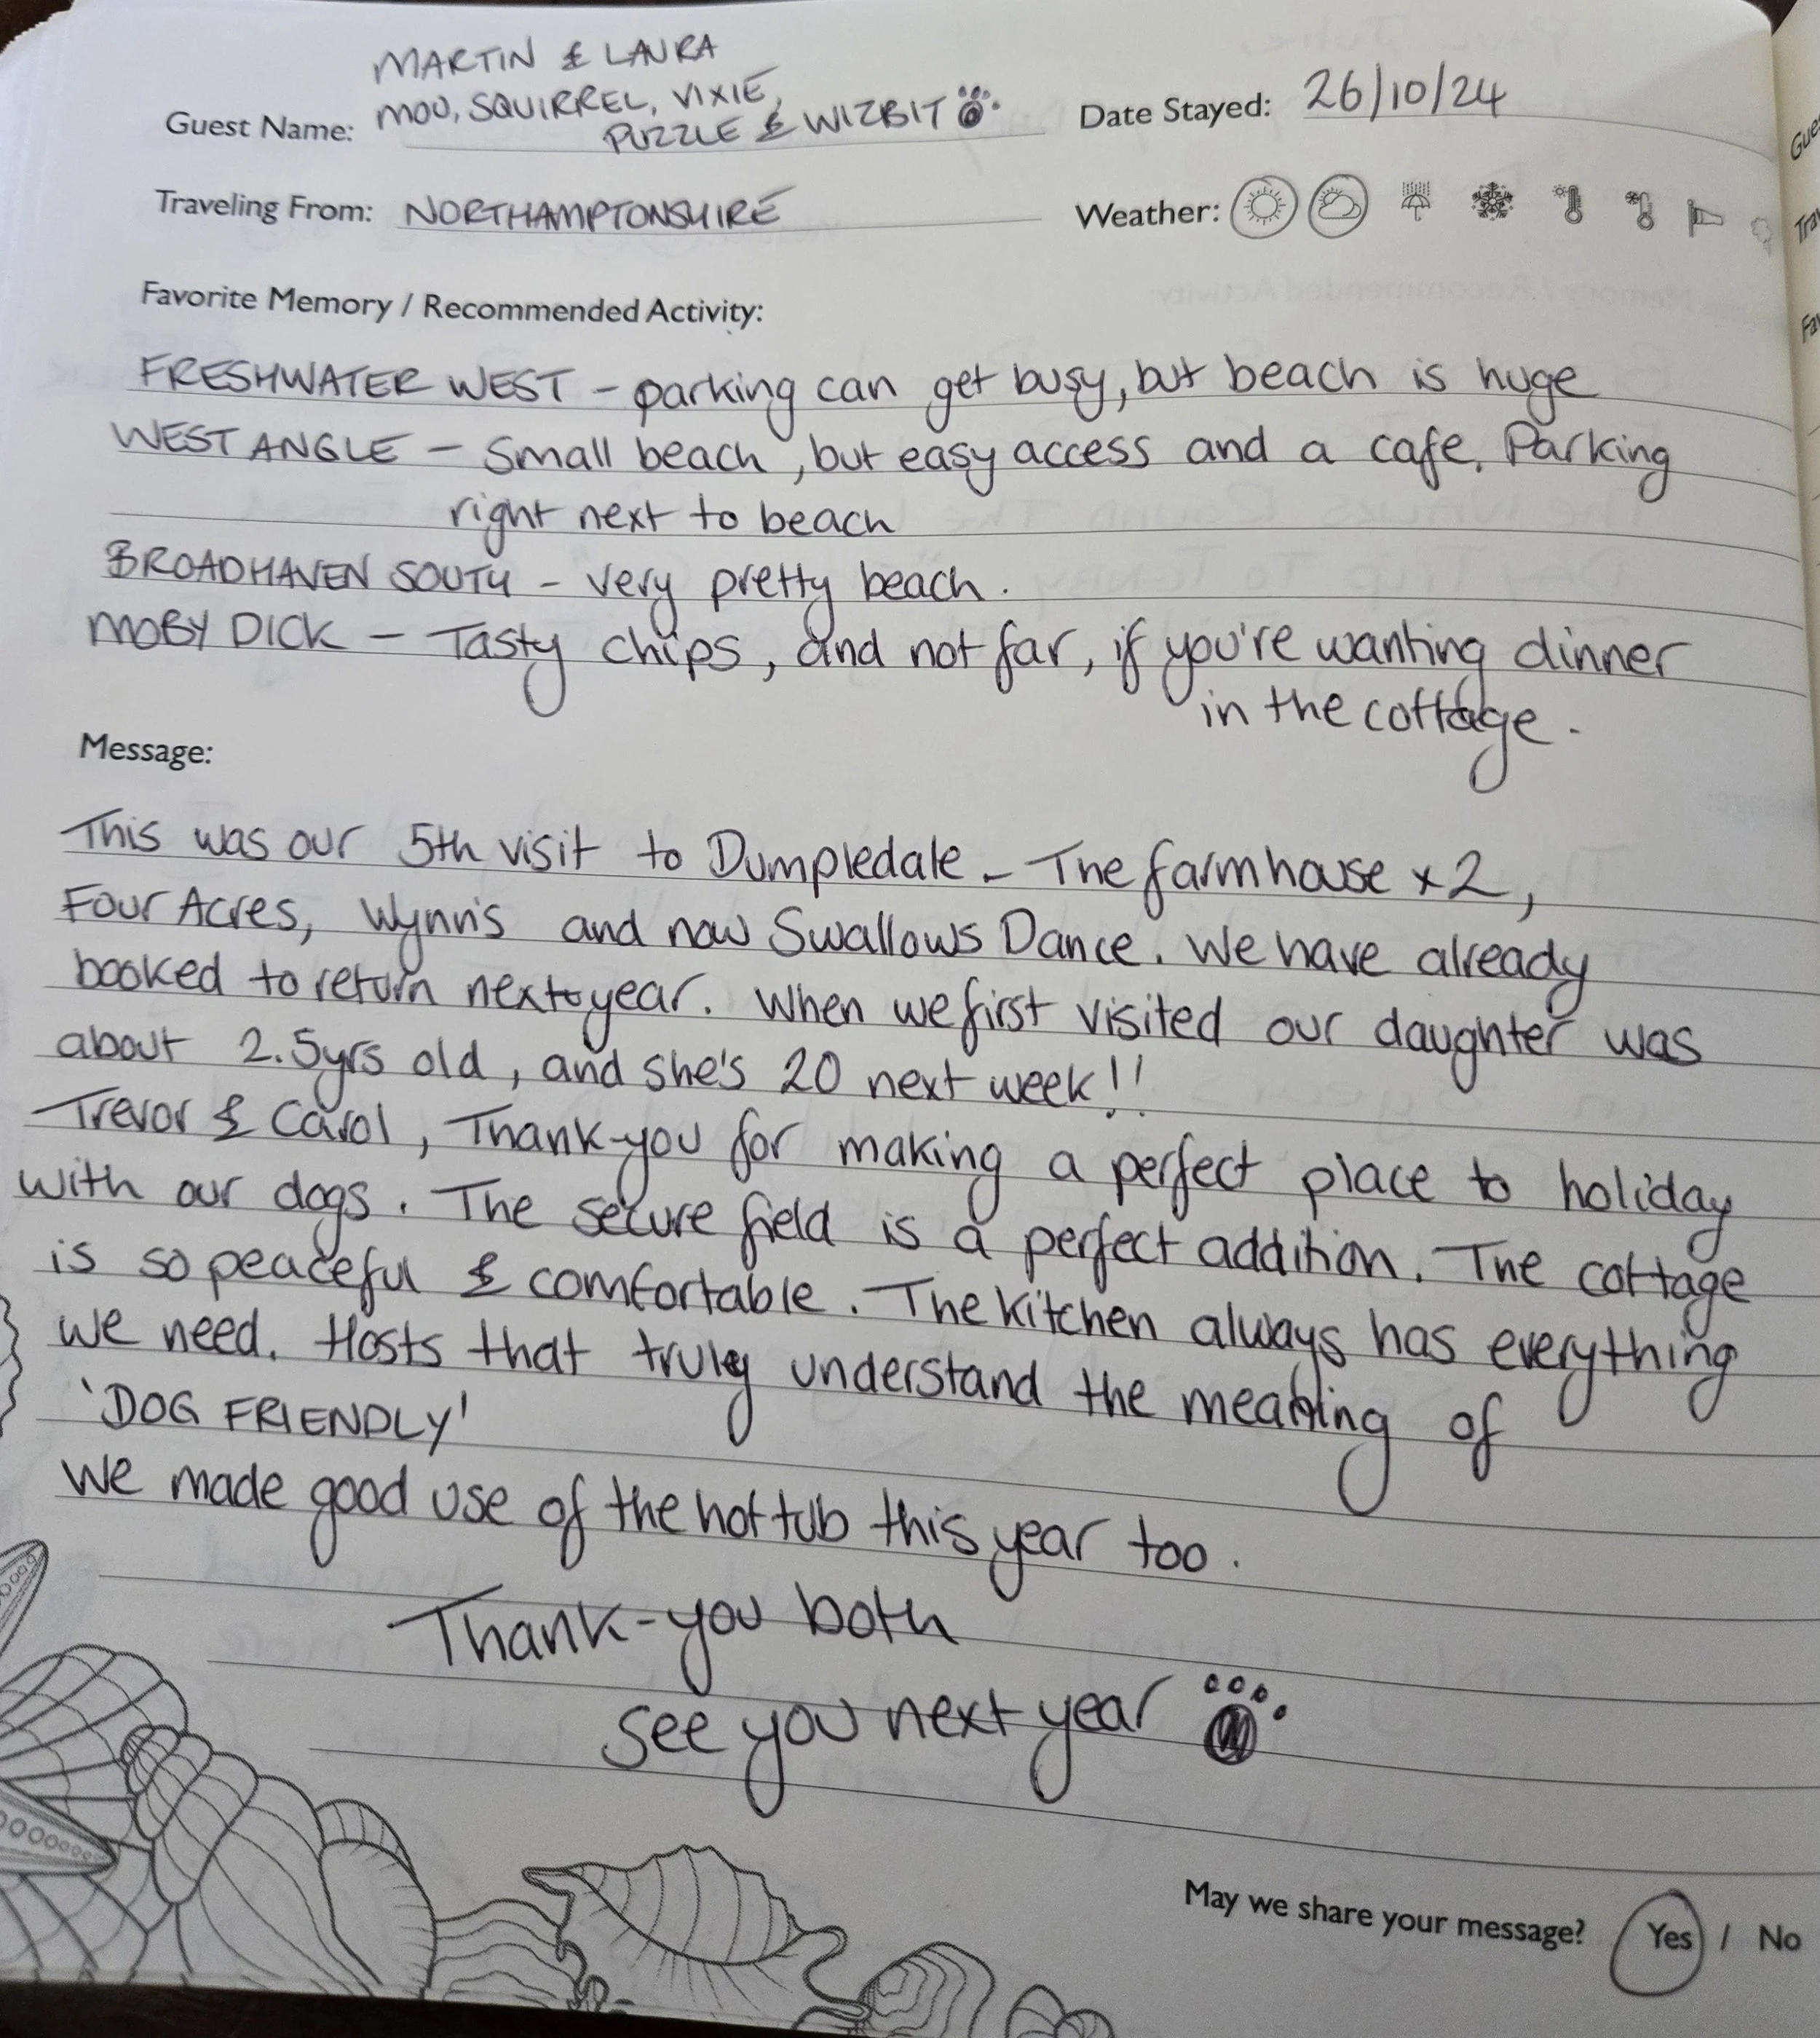 MARTIN & LAURA
Guest Name: MOU, SQUIRREL, VIXIE,
PUZZLE & WIZBIT
Date Stayed: 26/10/24
Traveling From: NORTHAMPTONSHIRE
Weather:
Favorite Memory / Recommended Activity:
FRESHWATER WEST - parking can get busy, but beach is huge
WEST ANGLE - Small beach, but easy access and a cafe. Parking
right next to beach
BROADHAVEN SOUTH - very pretty beach.
MOBY DICK - Tasty chips, and not far, if you're wanting dinner
in the cottage.
Message:
This was our 5th visit to Dumpledale - The farmhouse x2,
Four Acres, Wynn's and now Swallows Dance. We have already
booked to return next year. When we first visited our daughter was
about 2.5yrs old, and she's 20 next week!!
Trevor & Carol, Thank-you for making a perfect place to holiday
with our dogs. The secure field is a perfect addition. The cottage
is so peaceful & comfortable. The kitchen always has everything
we need. Hosts that truly understand the meaning of
'DOG FRIENDLY'
We made good use of the hot tub this year too.
Thank-you both
see you next year
May we share your message? Yes / No